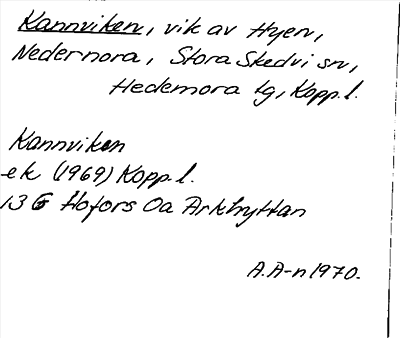 Kannviken, vik av Hyen,
Nedernora, Stora Skedvi sn,
Hedemora tg, Kopp. l.
Kannviken
ek (1969) Kopp. l.
13 G Hofors 0a Arkhyttan
A.A-n 1970.